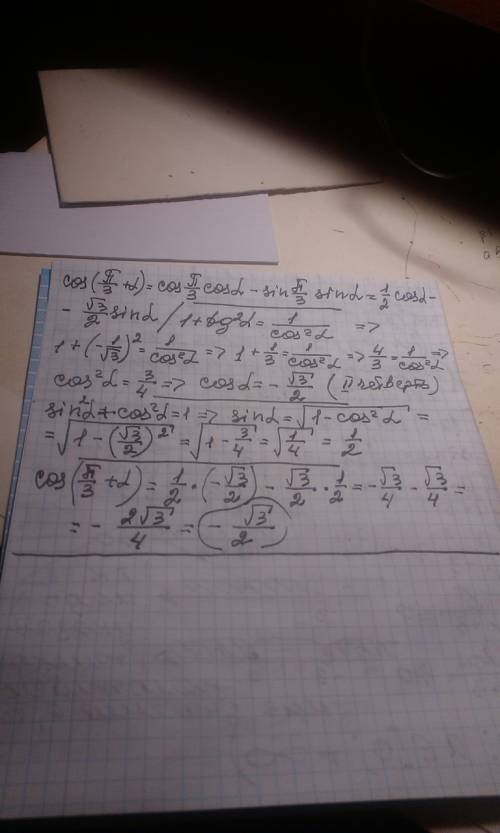 cos(π/3 + α) = cos π/3 cos α - sin π/3 sin α = 1/2 cos α -
- √3/2 sin α / 1 + tg²α = 1/cos²α =>
1 + (-1/√3)² = 1/cos²α => 1 + 1/3 = 1/cos²α => 4/3 = 1/cos²α =>
cos²α = 3/4 => cos α = - √3/2 (II четверть)
sin²α + cos²α = 1 => sin α = √(1 - cos²α) =
= √(1 - (√3/2)²) = √(1 - 3/4) = √(1/4) = 1/2
cos(π/3 + α) = 1/2 · (-√3/2) - √3/2 · 1/2 = -√3/4 - √3/4 =
= - 2√3/4 = (- √3/2)